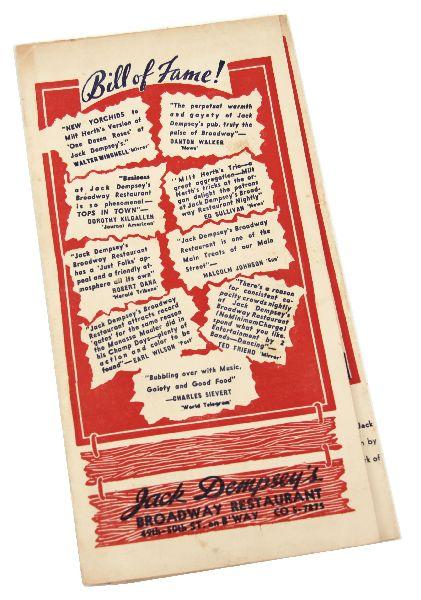 Bill of Fame!
"NEW YORCHIDS to
Milt Herth's Version of
'One Dozen Roses' at
Jack Dempsey's."
WALTER WINCHELL 'Mirror'
"The perpetual warmth
and gayety of Jack
Dempsey's pub, truly the
pulse of Broadway"—
DANTON WALKER
'News'
"Business
at Jack Dempsey's
Broadway Restaurant
is so phenomenal—
TOPS IN TOWN"—
DOROTHY KILGALLEN
'Journal American'
"Milt Herth's Trio—a
great aggregation—Milt
Herth's tricks at the or-
gan delight the patrons
of Jack Dempsey's Broad-
way Restaurant Nightly"
ED SULLIVAN 'News'
"Jack Dempsey's
Broadway Restaurant
has a 'Just Folks' ap-
peal and a friendly at-
mosphere all its own"
ROBERT DANA
'Herald Tribune'
"Jack Dempsey's Broadway
Restaurant is one of the
Main Treats of our Main
Street"—
MALCOLM JOHNSON 'Sun'
"Jack Dempsey's Broadway
Restaurant attracts record
'gates' for the same reason
the Manassa Mauler did in
his Champ Days—plenty of
action and color to be
found"—EARL WILSON 'Post'
"There's a reason
for consistent ca-
pacity crowds nightly
at Jack Dempsey's
Broadway Restaurant
(No Minimum Charge)
spend what you like,
Entertainment by 2
Bands—Dancing"—
TED FRIEND 'Mirror'
"Bubbling over with Music,
Gaiety and Good Food"
—CHARLES SIEVERT
'World Telegram'
Jack
by
k of
Jack Dempsey's
BROADWAY RESTAURANT
49th-50th ST. on B'WAY CO 5-7875